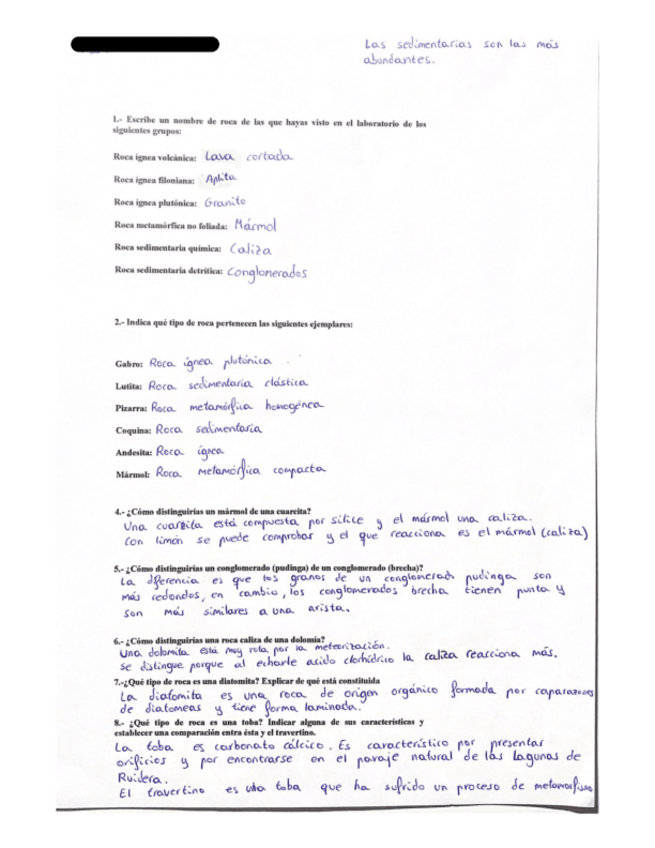 Las sedimentarias son las más
abundantes.
1.- Escribe un nombre de roca de las que hayas visto en el laboratorio de los
siguientes grupos:
Roca ígnea volcánica: Lava cortada
Roca ígnea filoniana: Aplita
Roca ígnea plutónica: Granito
Roca metamórfica no foliada: Mármol
Roca sedimentaria química: Caliza
Roca sedimentaria detrítica: Conglomerados
2.- Indica qué tipo de roca pertenecen las siguientes ejemplares:
Gabro: Roca ígnea plutónica
Lutita: Roca sedimentaria clástica
Pizarra: Roca metamórfica homogénea
Coquina: Roca sedimentaria
Andesita: Roca ígnea
Mármol: Roca metamórfica compacta
4.- ¿Cómo distinguirías un mármol de una cuarcita?
Una cuarzita está compuesta por sílice y el mármol una caliza.
Con limón se puede comprobar y el que reacciona es el mármol (caliza)
5.- ¿Cómo distinguirías un conglomerado (pudinga) de un conglomerado (brecha)?
La diferencia es que los granos de un conglomerado pudinga son
más redondos, en cambio, los conglomerados brecha tienen punta y
son más similares a una arista.
6.- ¿Cómo distinguirías una roca caliza de una dolomía?
Una dolomita está muy rota por la meteorización.
se distingue porque al echarle acido clorhídrico la caliza reacciona más.
7.-¿Qué tipo de roca es una diatomita? Explicar de qué está constituida
La diatomita es una roca de origen orgánico formada por caparazones
de diatomeas y tiene forma laminada.
8.- ¿Qué tipo de roca es una toba? Indicar alguna de sus características y
establecer una comparación entre ésta y el travertino.
La toba es carbonato cálcico. Es característico por presentar
orificios y por encontrarse en el paraje natural de las lagunas de
Ruidera.
El travertino es una toba que ha sufrido un proceso de metamorfismo